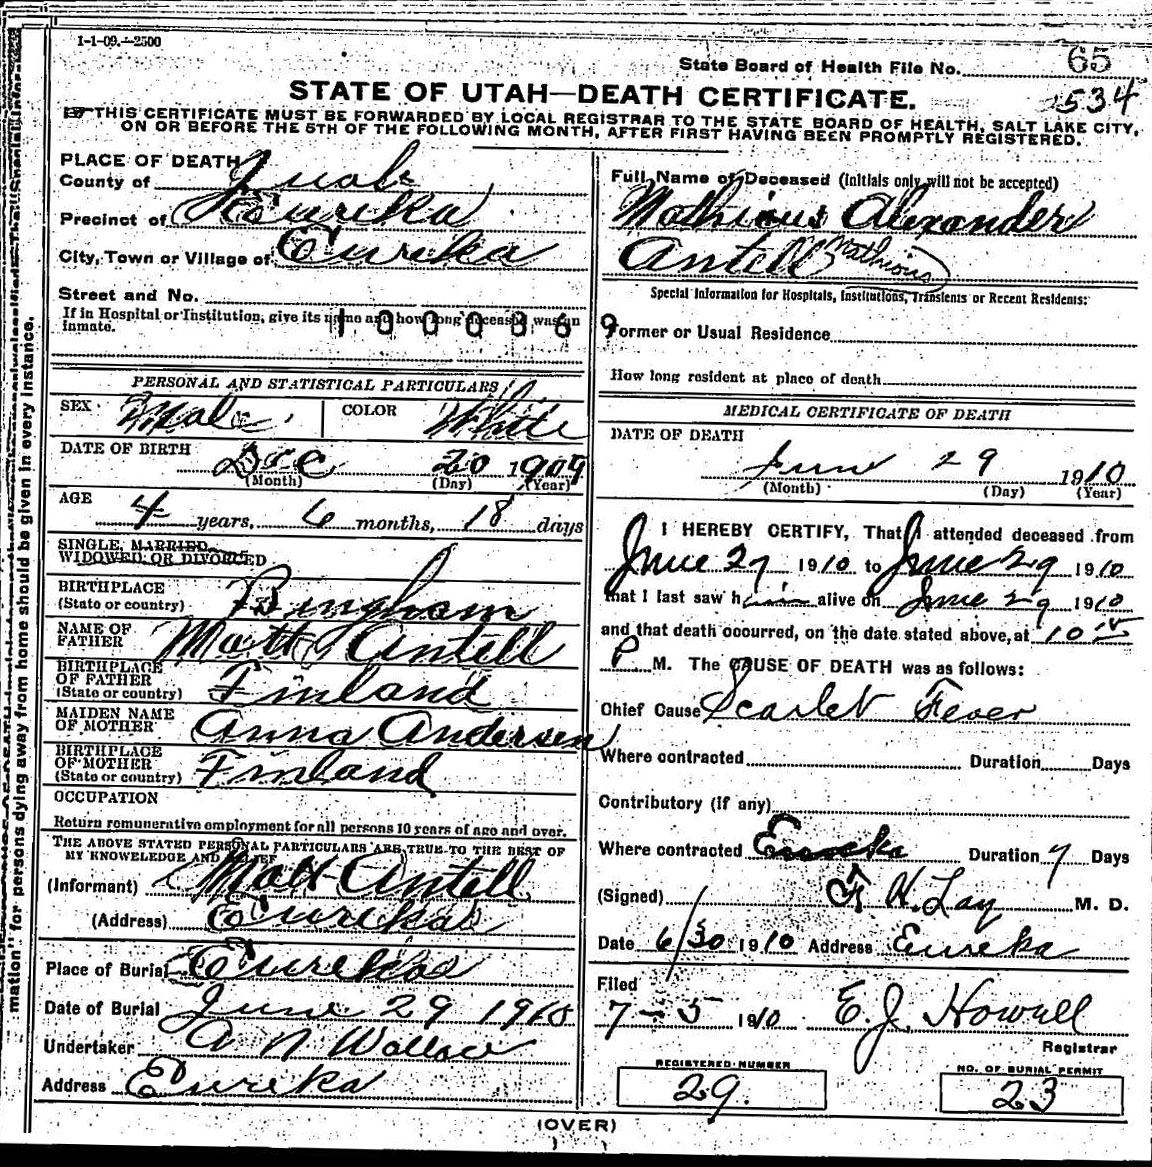 1-1-09.—2500
State Board of Health File No. 65
534
STATE OF UTAH—DEATH CERTIFICATE.
THIS CERTIFICATE MUST BE FORWARDED BY LOCAL REGISTRAR TO THE STATE BOARD OF HEALTH, SALT LAKE CITY,
ON OR BEFORE THE 5TH OF THE FOLLOWING MONTH, AFTER FIRST HAVING BEEN PROMPTLY REGISTERED.
PLACE OF DEATH
County of Juab
Precinct of Eureka
City, Town or Village of Eureka
Street and No.
If in Hospital or Institution, give its name and how long deceased was an
inmate.
1000369
PERSONAL AND STATISTICAL PARTICULARS
SEX Male COLOR White
DATE OF BIRTH Dec 20 1909
(Month) (Day) (Year)
AGE 4 years, 6 months, 18 days
SINGLE, MARRIED,
WIDOWED OR DIVORCED
BIRTHPLACE
(State or country) Bingham
NAME OF
FATHER Matt Antell
BIRTHPLACE
OF FATHER
(State or country) Finland
MAIDEN NAME
OF MOTHER Anna Andersen
BIRTHPLACE
OF MOTHER
(State or country) Finland
OCCUPATION
Return remunerative employment for all persons 10 years of age and over.
THE ABOVE STATED PERSONAL PARTICULARS ARE TRUE TO THE BEST OF
MY KNOWLEDGE AND BELIEF
(Informant) Matt Antell
(Address) Eureka
Place of Burial Eureka
Date of Burial June 29 1910
Undertaker A N Wallace
Address Eureka
Full Name of Deceased (initials only will not be accepted)
Mathious Alexander
Antell Mathious
Special Information for Hospitals, Institutions, Transients or Recent Residents:
Former or Usual Residence
How long resident at place of death
MEDICAL CERTIFICATE OF DEATH
DATE OF DEATH
June 29 1910
(Month) (Day) (Year)
I HEREBY CERTIFY, That I attended deceased from
June 27 1910 to June 29 1910
that I last saw him alive on June 29 1910
and that death occurred, on the date stated above, at 10 15
P M. The CAUSE OF DEATH was as follows:
Chief Cause Scarlet Fever
Where contracted Duration Days
Contributory (if any)
Where contracted Eureka Duration 7 Days
(Signed) F. H. Lay M. D.
Date 6/30 1910 Address Eureka
Filed
7-5 1910 E. J. Howell
Registrar
REGISTERED NUMBER
29.
NO. OF BURIAL PERMIT
23
(OVER)
mation" for persons dying away from home should be given in every instance.